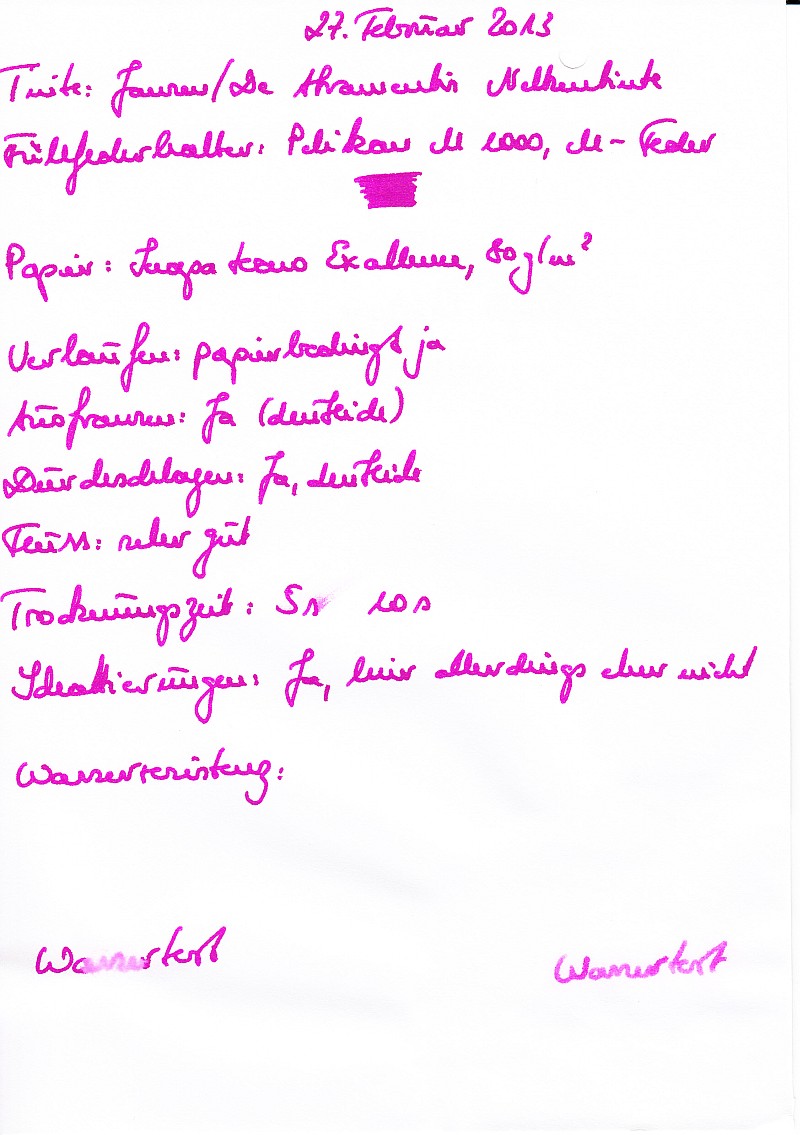 27. Februar 2013
Tinte: Jansen/De Atramentis Nelkentinte
Füllfederhalter: Pelikan M 1000, M-Feder
Papier: Inapa tecno Excellence, 80g/m²
Verlaufen: papierbedingt ja
Ausfransen: Ja (deutlich)
Durchschlagen: Ja, deutlich
Fluss: sehr gut
Trocknungszeit: 5s 10s
Schattierungen: Ja, hier allerdings eher nicht
Wasserresistenz:
Wassertest Wassertest